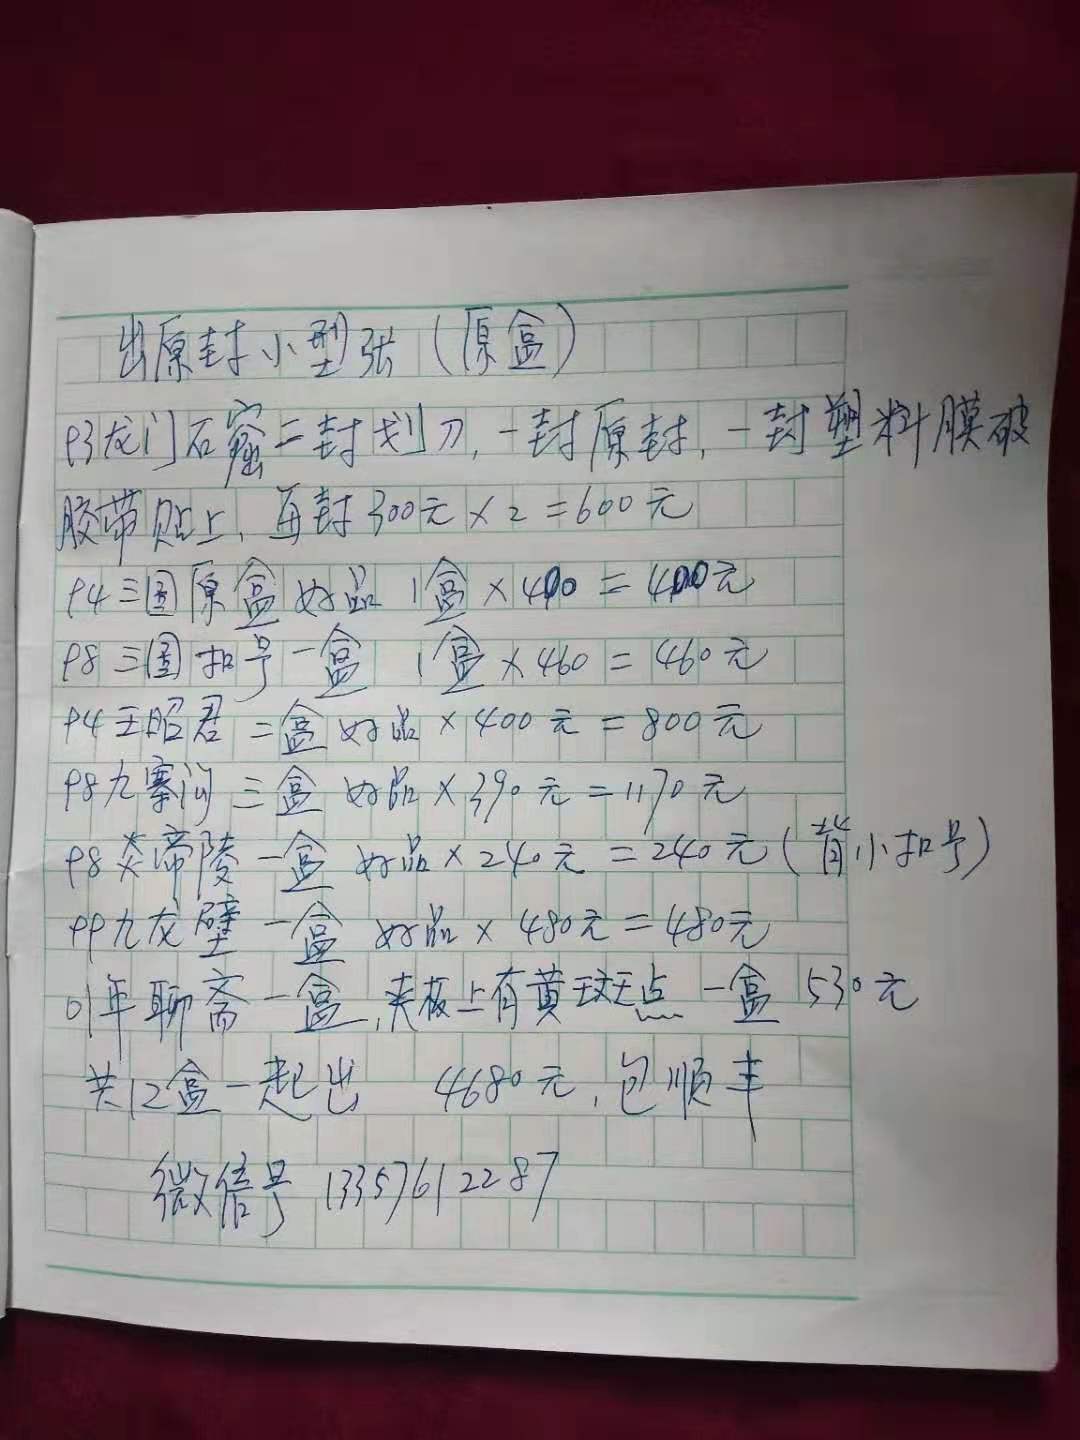 出原封小型张(原盒)
93龙门石窟二封划刀,一封原封,一封塑料膜破
胶带贴上,每封300元×2=600元
94三国原盒好品 1盒×400=400元
98三国扣号一盒 1盒×460=460元
94王昭君二盒好品×400元=800元
98九寨沟三盒好品×390元=1170元
98炎帝陵一盒好品×240元=240元(背小扣号)
99九龙壁一盒好品×480元=480元
01年聊斋一盒,夹板上有黄斑点一盒530元
共12盒一起出 4680元,包顺丰
微信号13357612287